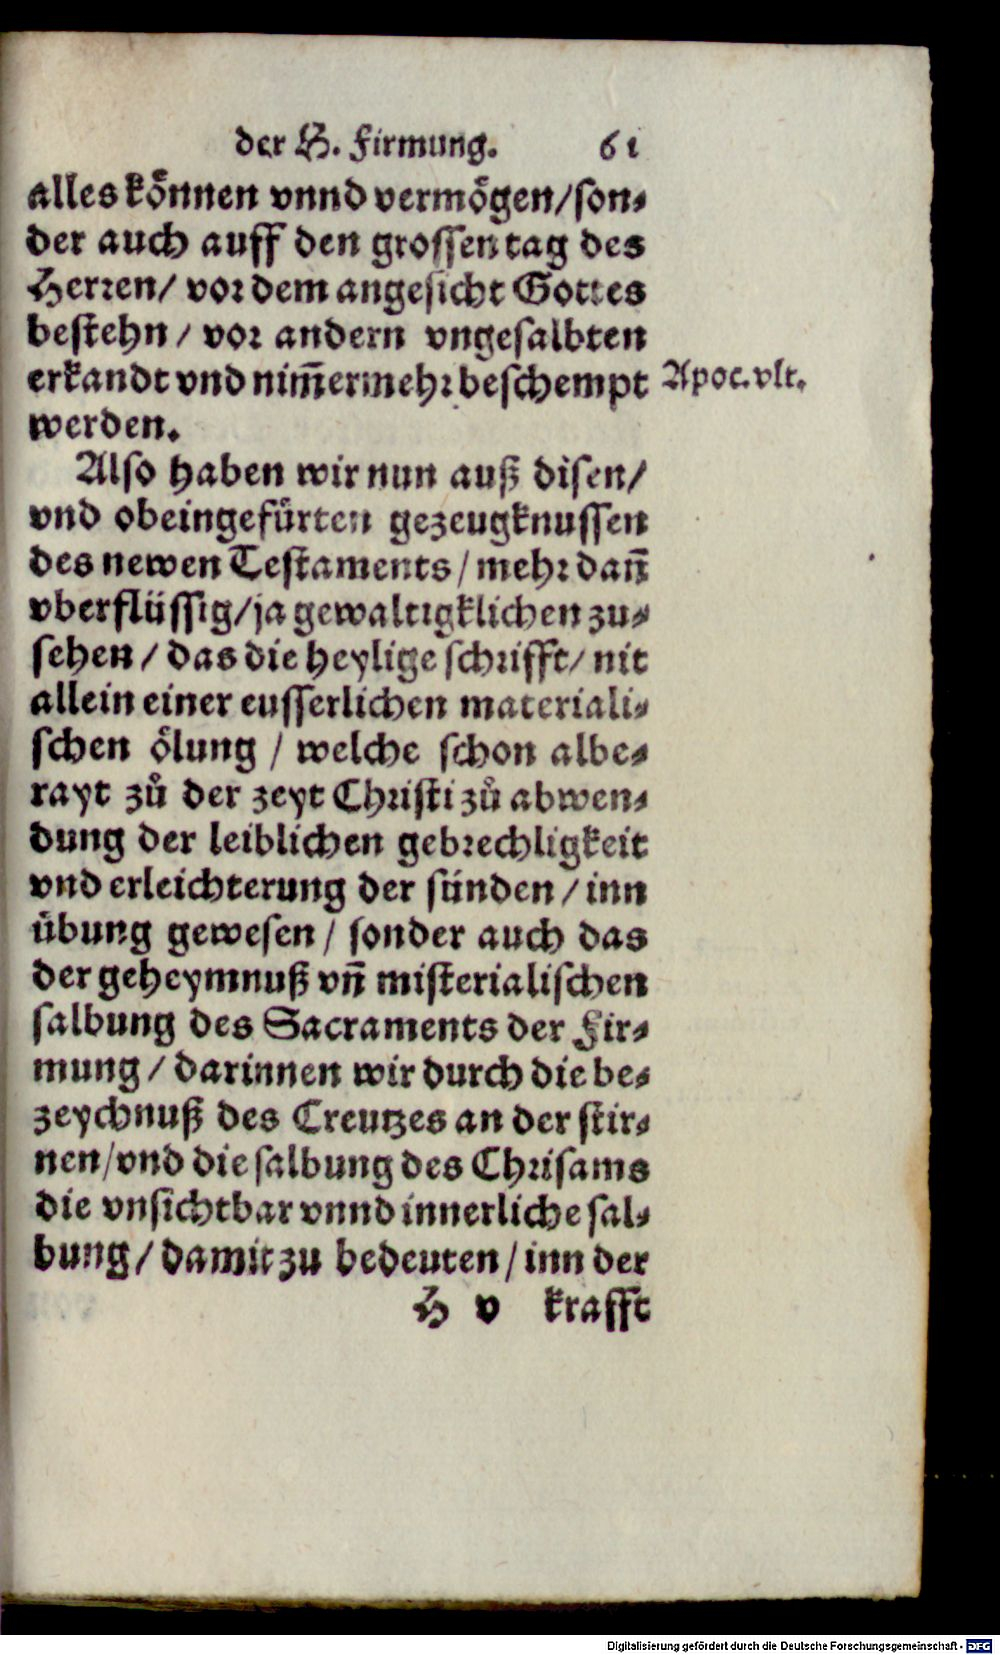 der H. Firmung. 61
alles koͤnnen vnnd vermoͤgen/son⸗
der auch auff den grossen tag des
Herren/ vor dem angesicht Gottes
bestehn / vor andern vngesalbten
erkandt vnd nim̃ermehr beschempt
Apoc. vlt.
werden.
Also haben wir nun auß disen/
vnd obeingefuͤrten gezeugknussen
des newen Testaments / mehr dañ
vberfluͤssig/ja gewaltigklichen zu⸗
sehen / das die heylige schrifft/ nit
allein einer eusserlichen materiali⸗
schen oͤlung / welche schon albe⸗
rayt zů der zeyt Christi zů abwen⸗
dung der leiblichen gebrechligkeit
vnd erleichterung der suͤnden / inn
uͤbung gewesen / sonder auch das
der geheymnuß vñ misterialischen
salbung des Sacraments der Fir⸗
mung / darinnen wir durch die be⸗
zeychnuß des Creutzes an der stir⸗
nen/vnd die salbung des Chrisams
die vnsichtbar vnnd innerliche sal⸗
bung / damit zu bedeuten / inn der
H v krafft
Digitalisierung gefördert durch die Deutsche Forschungsgemeinschaft - DFG